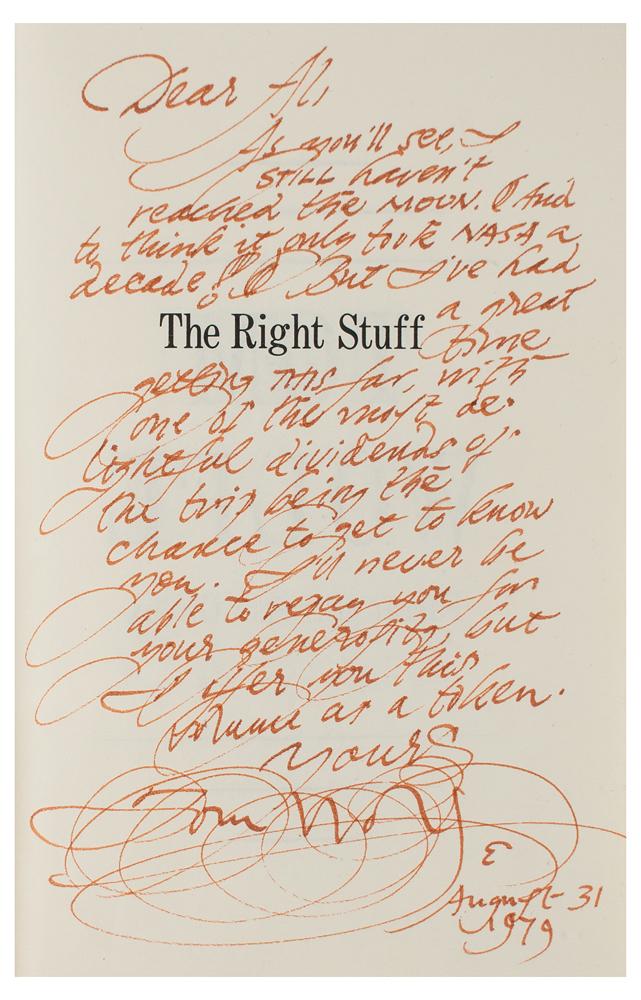 Dear Al,
As you'll see, I
STILL haven't
reached the MOON. (And
to think it only took NASA a
decade!!) But I've had
a great
The Right Stuff
time
getting this far, with
one of the most de-
lightful dividends of
the trip being the
chance to get to know
you. I'll never be
able to repay you for
your generosity, but
I offer you this
volume as a token.
Yours
Tom Wolfe
August 31
1979